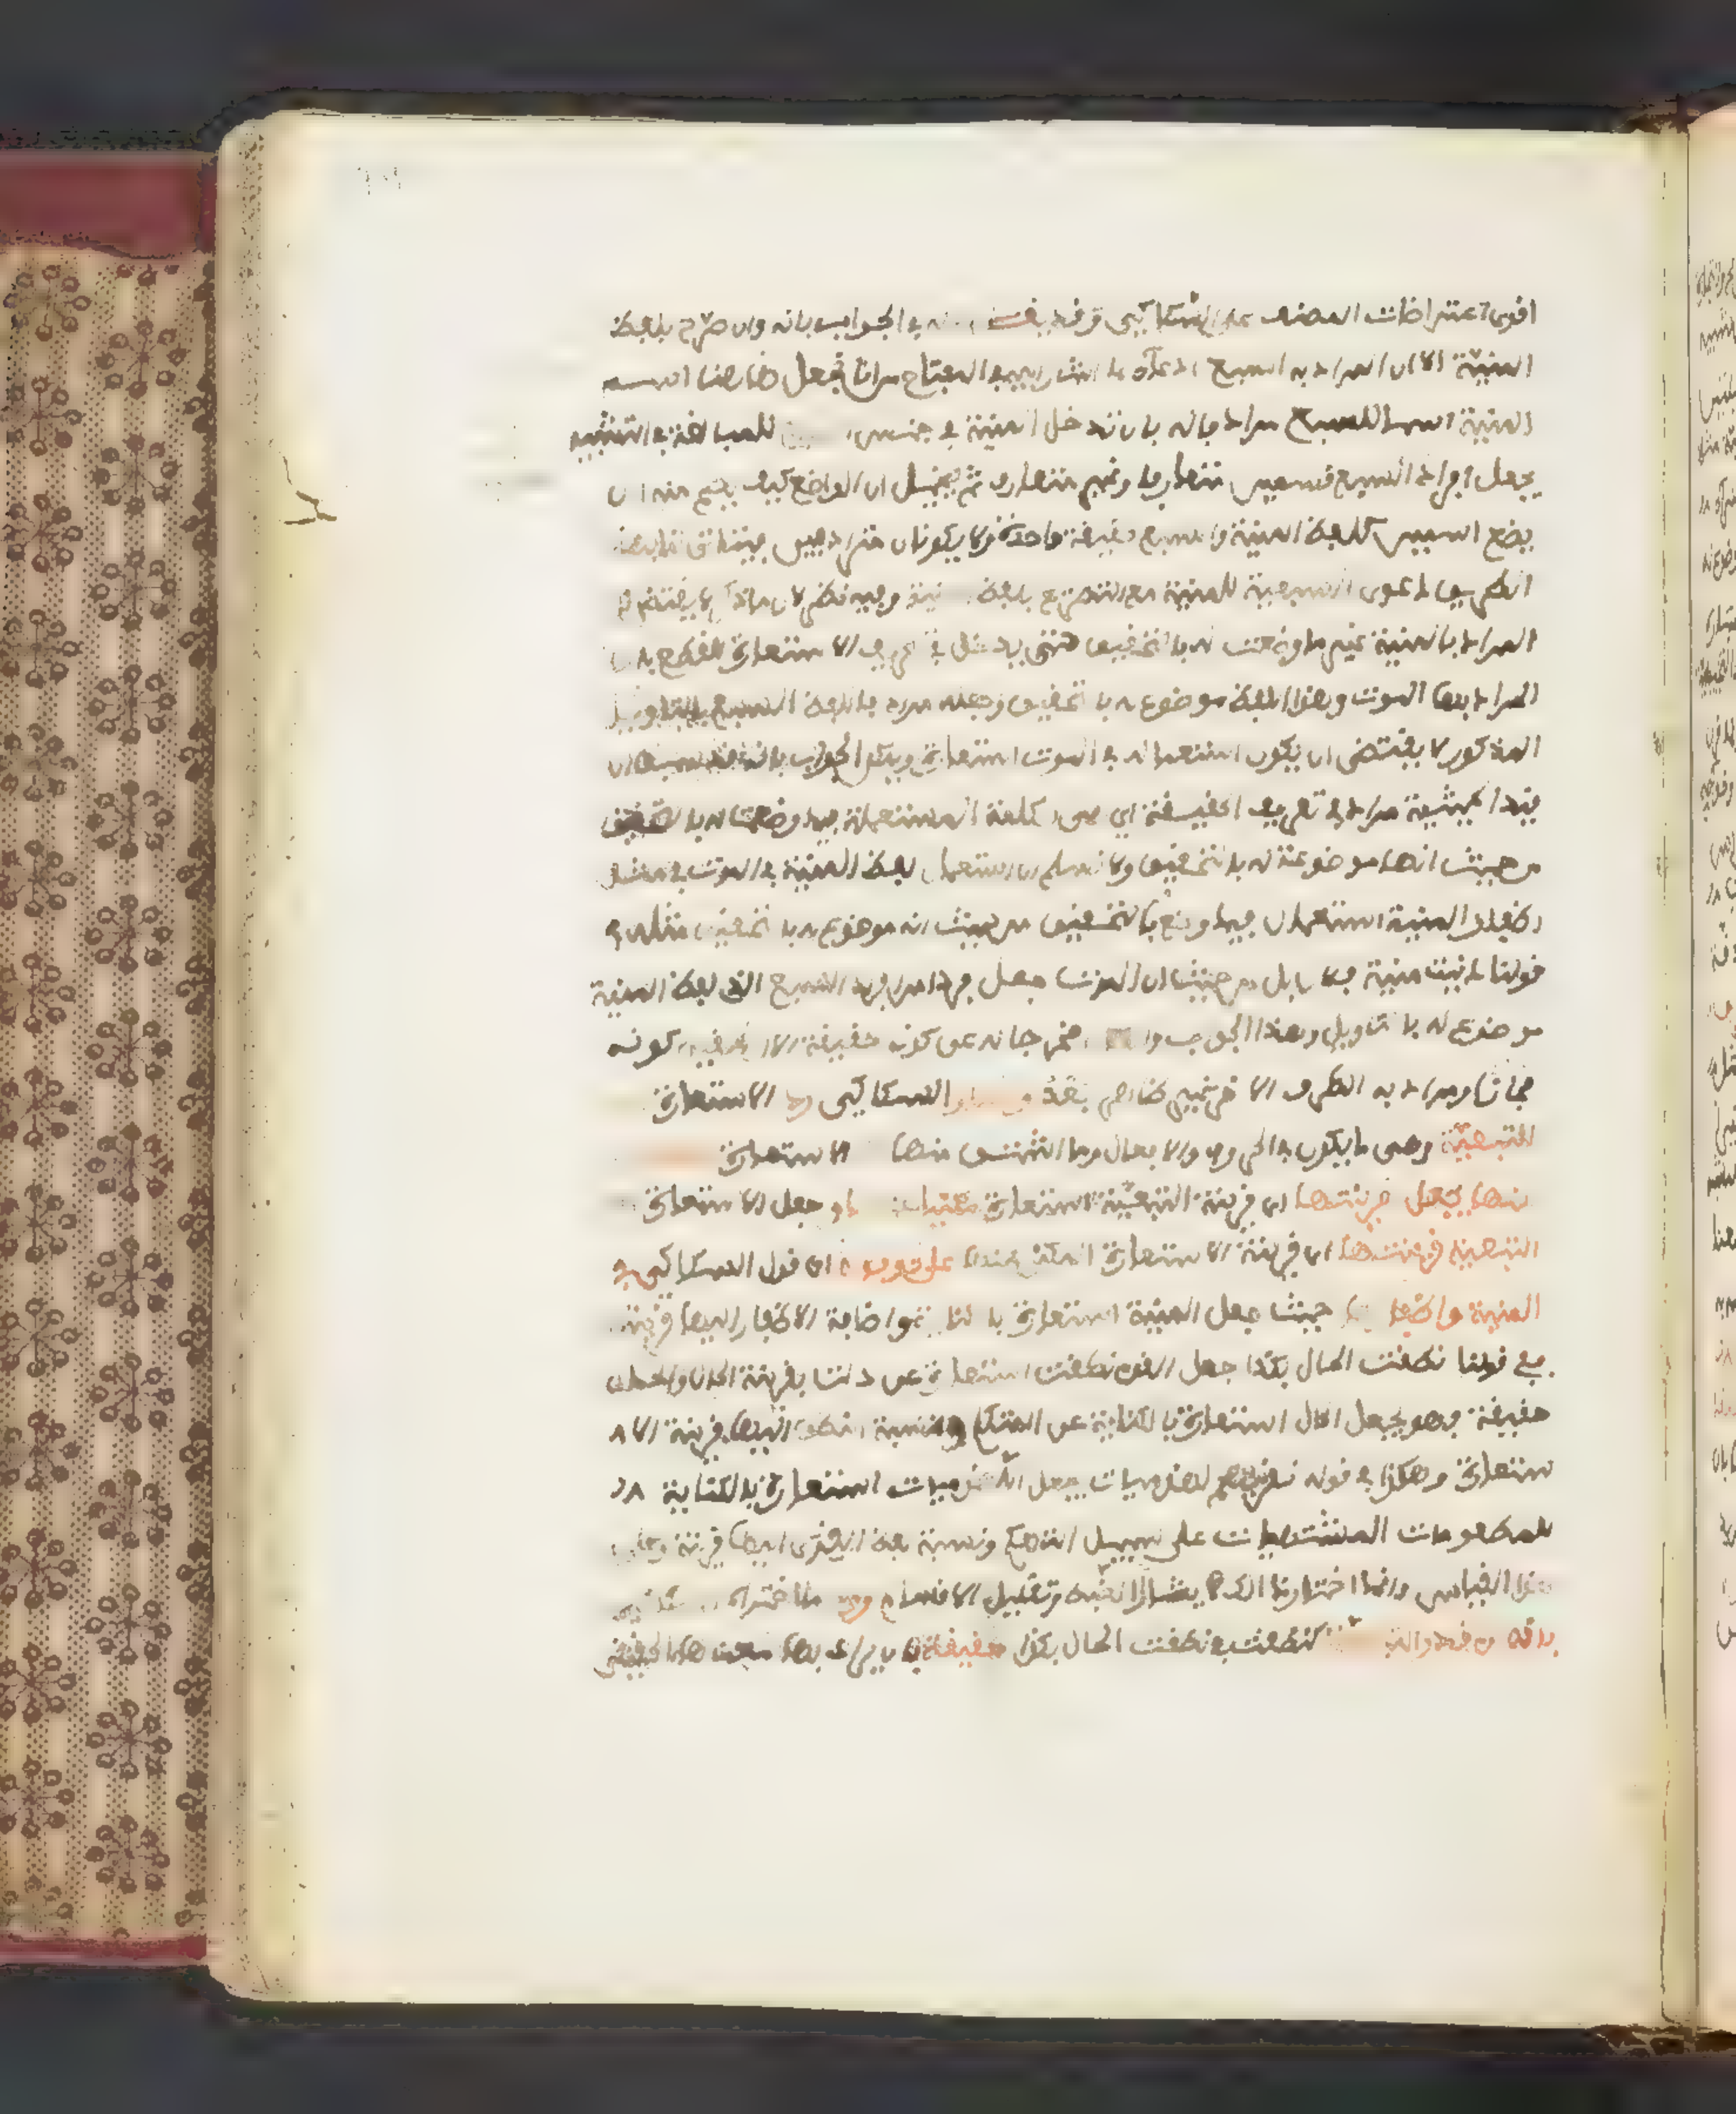 اقوى اعتراضات المصنف على السكاكي وقد يجاب عنه في الجواب بانه وان صرح بلفظ
المنية الا ان المراد به السبع ادعاء كما اشار اليه في المفتاح من انا نجعل هاهنا اسم
المنية اسما للسبع مرادفا له بان ندخل المنية في جنس للمبالغة في التشبيه
بجعل افراد السبع قسمين متعارفا وغير متعارف ثم يخيل ان الواضع كيف يصح منه ان
يضع اسمين كلفظ المنية والسبع لحقيقة واحدة ولا يكونان مترادفين فيتأتى لنا بهذا
الطريق دعوى السبعية للمنية مع التصريح بلفظ المنية وفيه نظر لان ما ذكره لا يقتضي
المراد بالمنية غير ما وضعت له بالتحقيق حتى يدخل في تعريف الاستعارة للقطع بان
المراد بها الموت وهذا اللفظ موضوع له بالتحقيق وجعله مرادفا للفظ السبع بالتاويل
المذكور لا يقتضي ان يكون استعماله في الموت استعارة ويمكن الجواب بانه قد سبق ان
قيد الحيثية مراد في تعريف الحقيقة اي هي الكلمة المستعملة فيما وضعت له بالتحقيق
من حيث انها موضوعة له بالتحقيق ولا نسلم ان استعمال لفظ المنية في الموت في مثل
اظفار المنية استعمال فيما وضع بالتحقيق من حيث انه موضوع له بالتحقيق مثله في
قولنا دنت منية فلان بل من حيث ان الموت جعل من افراد السبع الذي لفظ المنية
موضوع له بالتاويل وهذا الجواب وان اخرجه عن كونه حقيقة الا ان تحقيق كونه
مجازا ومرادا به الطرف الاخر غير ظاهر بعد السكاكي رد الاستعارة
التبعية وهي ما يكون في الحروف والافعال وما اشتق منها الاستعارة
عنها بجعل قرينتها اي قرينة التبعية استعارة مكنيا عنها وجعل الاستعارة
التبعية قرينتها اي قرينة الاستعارة المكنى عنها على نحو قوله اي قول السكاكي في
المنية واظفارها حيث جعل المنية استعارة بالكناية واضافة الاظفار اليها قرينة
ففي قولنا نطقت الحال بكذا جعل القوم نطقت استعارة عن دلت بقرينة الحال والحال
حقيقة فهو يجعل الحال استعارة بالكناية عن المتكلم ونسبة النطق اليها قرينة الا
ستعارة وهكذا في قوله نقريهم لهذميات يجعل اللهذميات استعارة بالكناية
للمطعومات المشتهيات على سبيل التهكم ونسبة لفظ القرى اليها قرينة وعلى
هذا القياس وانما اختار ذلك ايثارا للضبط وتقليل الاقسام ورد ما اختاره السكاكي
بانه ان قدر التبعية كنطقت في نطقت الحال بكذا حقيقة بان يراد بها معناها الحقيقي